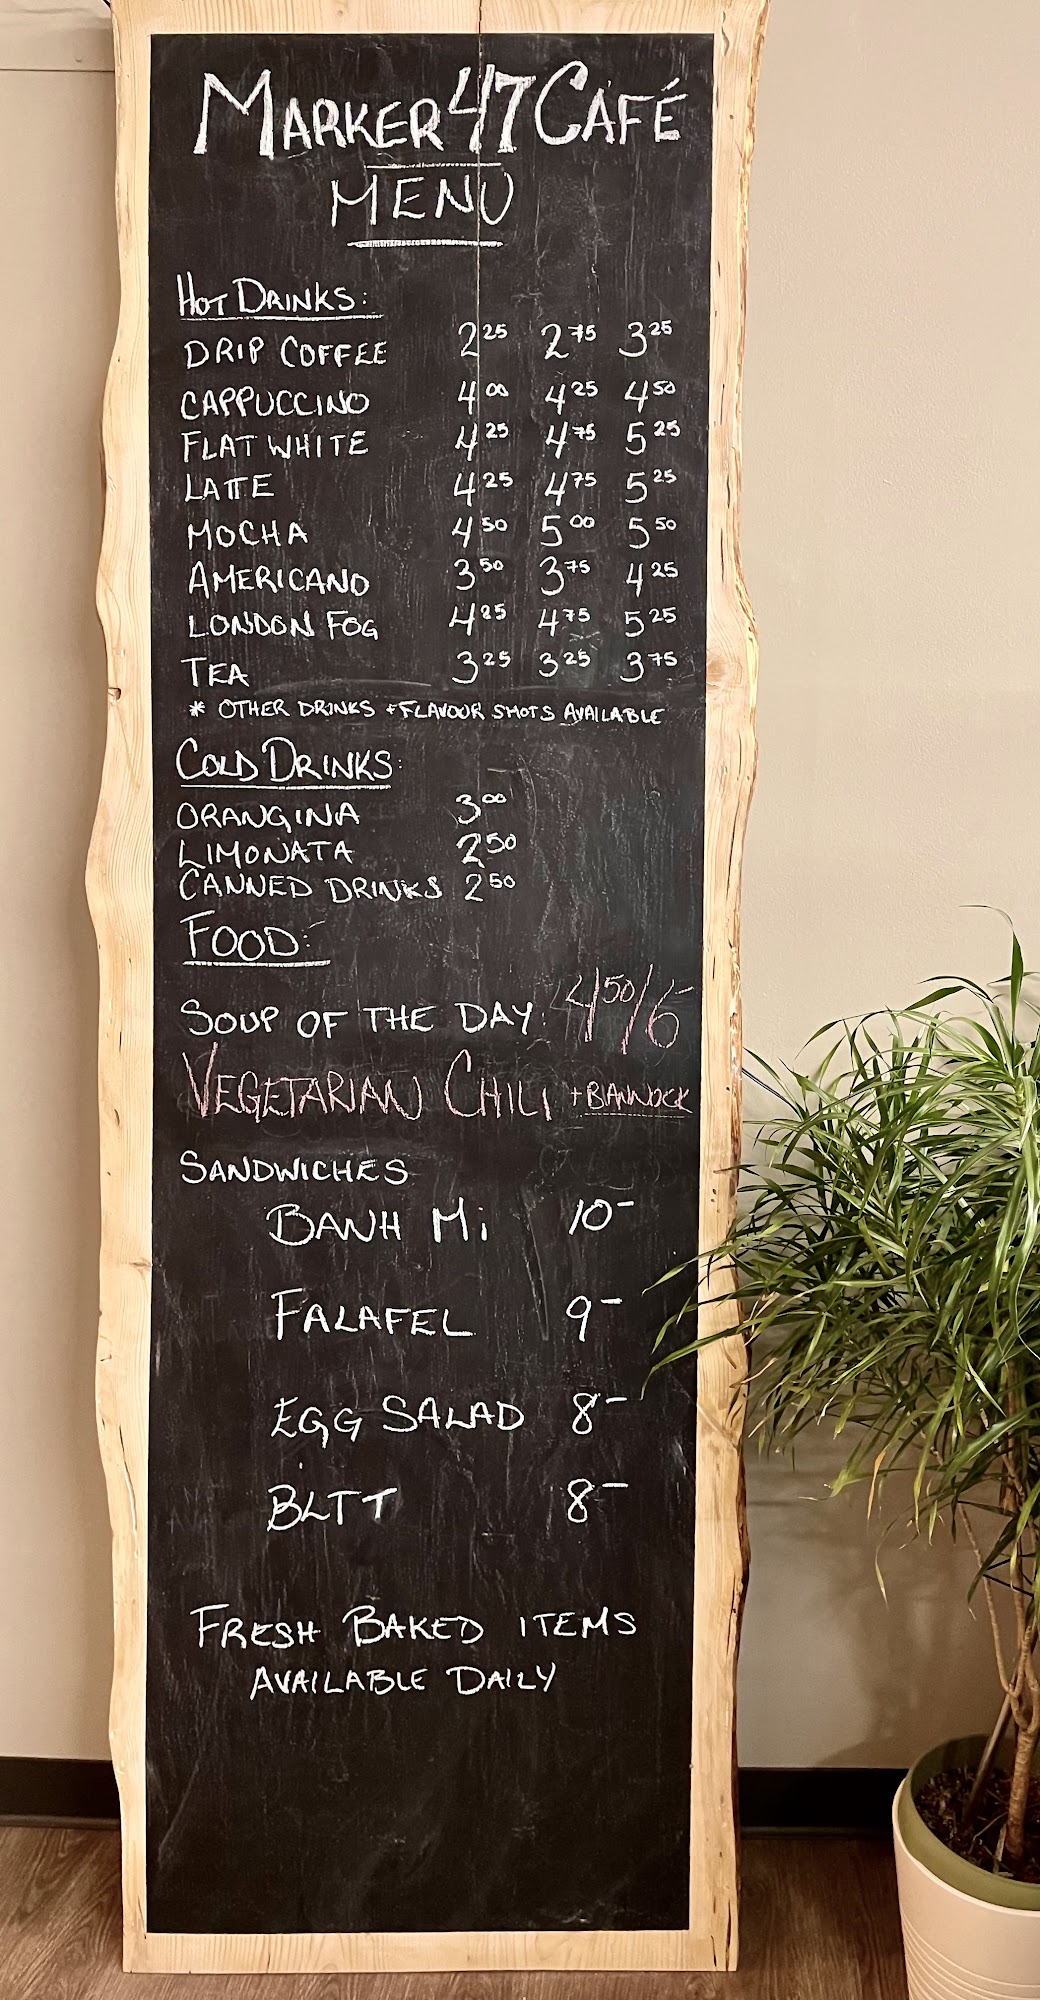 MARKER 47 CAFÉ
MENU
HOT DRINKS:
DRIP COFFEE 2 25 2 75 3 25
CAPPUCCINO 4 00 4 25 4 50
FLAT WHITE 4 25 4 75 5 25
LATTE 4 25 4 75 5 25
MOCHA 4 50 5 00 5 50
AMERICANO 3 50 3 75 4 25
LONDON FOG 4 25 4 75 5 25
TEA 3 25 3 25 3 75
* OTHER DRINKS + FLAVOUR SHOTS AVAILABLE
COLD DRINKS:
ORANGINA 3 00
LIMONATA 2 50
CANNED DRINKS 2 50
FOOD:
SOUP OF THE DAY: 4 50/6-
VEGETARIAN CHILI + BANNOCK
SANDWICHES
BANH Mi 10-
FALAFEL 9-
EGG SALAD 8-
BLTT 8-
FRESH BAKED ITEMS
AVAILABLE DAILY